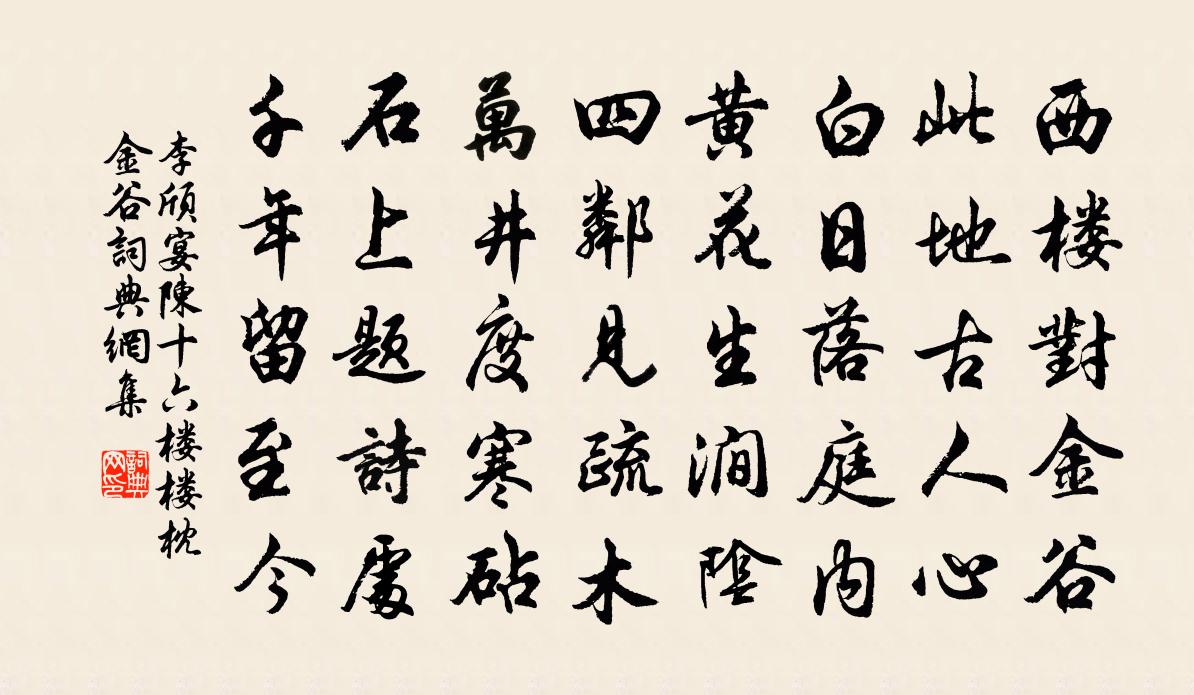 西楼對金谷
此地古人心
白日落庭内
黄花生澗陰
四鄰見疏木
萬井度寒砧
石上题詩處
千年留至今
李頎宴陳十六楼楼枕
金谷詞典網集
詞典
网印